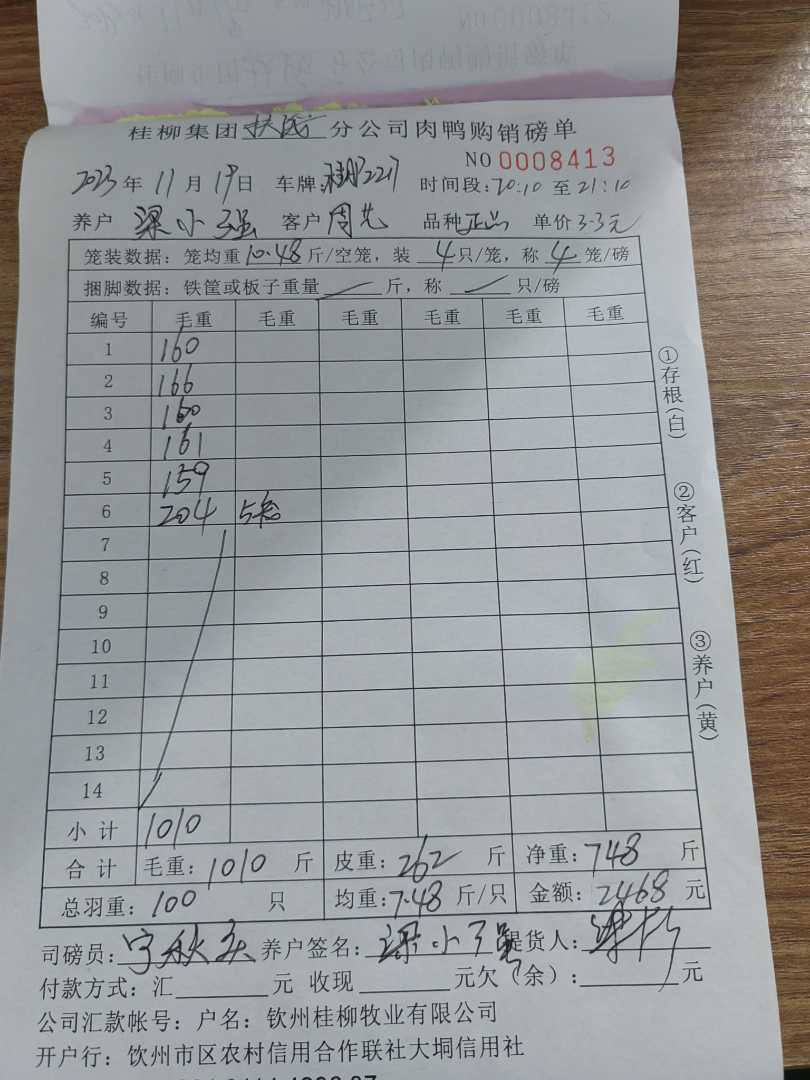 桂柳集团扶绥分公司肉鸭购销磅单
NO 0008413
2023年11月19日 车牌:桂 时间段:20:10至21:10
养户 梁小强 客户 周艺 品种 正品 单价 3.3元
笼装数据：笼均重10.48斤/空笼，装4只/笼，称4笼/磅
捆脚数据：铁筐或板子重量 斤，称 只/磅
编号 毛重 毛重 毛重 毛重 毛重 毛重
1 160
2 166
3 160
4 161
5 159
6 204 5笼
7
8
9
10
11
12
13
14
小计 1010
合计 毛重：1010斤 皮重：262斤 净重：748斤
总羽重：100只 均重：7.48斤/只 金额：2468元
司磅员： 养户签名：梁小强 提货人：
付款方式：汇 元 收现 元欠（余）： 元
公司汇款帐号：户名：钦州桂柳牧业有限公司
开户行：钦州市区农村信用合作联社大垌信用社
①存根(白)
②客户(红)
③养户(黄)